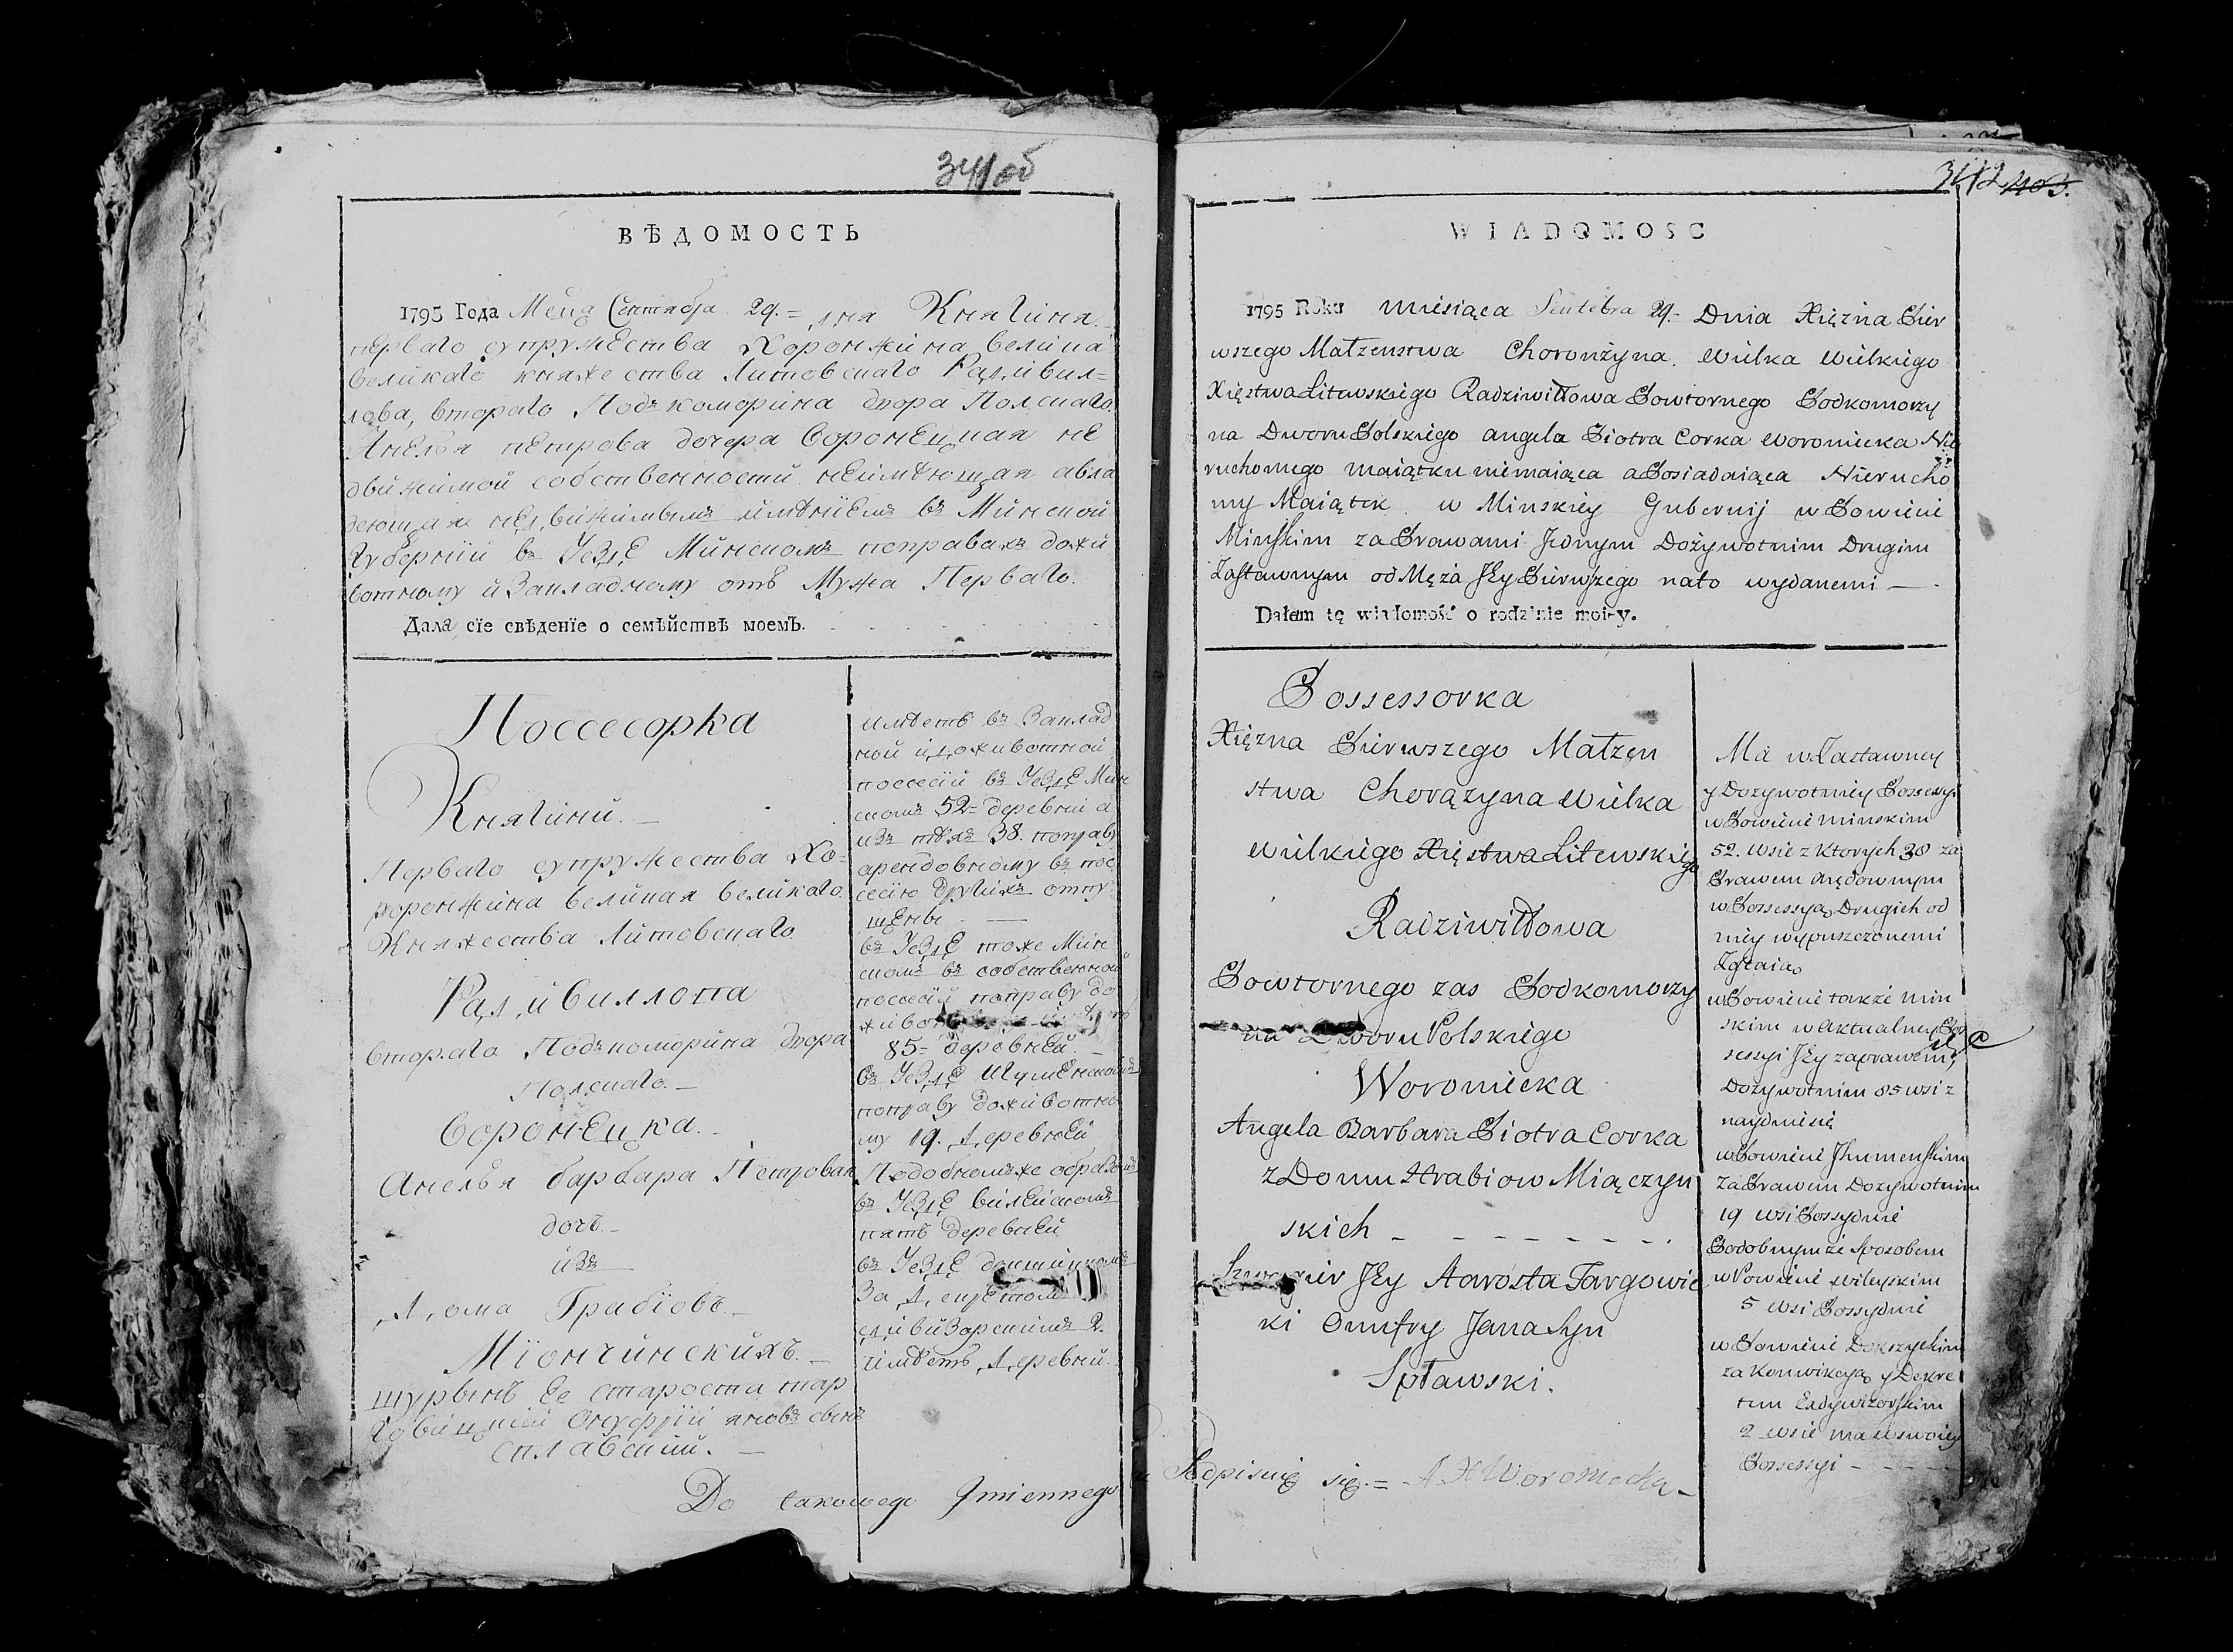 341 об
ВѢДОМОСТЬ
1795 Года Мѣца Сентября 29.= дня Княгиня
перваго супружества Хоронжина велика
великаго княжества Литовскаго Радзивил=
лова, втораго Подкоморина двора Полскаго
Анеля петрова дочера Воронецкая не
движимой собственности неимѣющая авла
деющая недвижимымъ имѣниемъ въ Минской
Губернии въ Уездѣ Минскомъ поправахъ дожи
вотному и Закладному отъ Мужа Перваго.
Дала сїе свѣденїе о семѣйствѣ моемЪ.
Поссесорка
Княгини.
Перваго супружества Хо=
ронжина великая великаго
Княжества Литовскаго
Радзивиллова
втораго Подкоморина двора
Полскаго.
Воронецка.
Анеля барбара Петрован
дочь.
изъ
дома Грабїовъ.
Мїончинскихъ.
шурынъ Ее староста тар
говицкий Онуфрий яновъ сынъ
сплавский.
имѣетъ въ Заклад
ной и доживотной
поссесий въ Уездѣ Мин
скомъ 52= деревни а
изъ тѣхъ 38. поправу
арендовному въ пос
сесию другихъ отпу
щены
въ Уездѣ тоже Мин
скомъ въ собственной
поссесий поправу до
живо
85= деревней.
въ Уездѣ Игуменскомъ
поправу доживотно
му 19. деревней
Подобномъже образомъ
въ Уездѣ вилейскомъ
пять деревней
въ Уездѣ
За
2.
имѣетъ деревни.
Do takowego Jmiennego
342 403.
WIADOMOSC
1795 Roku miesiąca Sentebra 29.= Dnia Xiężna Pier
wszego Małzenstwa Choronżyna Wielka Wielkiego
Xięstwa Litewskiego Radziwiłłowa Powtornego Podkomorzy
na Dworu Polskiego Angela Piotra Corka Woroniecka Nie
ruchomego maiątku niemaiąca a Posiadaiąca Nierucho
my Maiątek w Minskiey Gubernij w Powiecie
Minskim za Prawami Jednym Dożywotnim Drugim
Zastawnym od Męża Jey Pierwszego nato wydanemi —
Dałem tę wiadomość o rodzinie moiey.
Possessorka
Xięzna Pierwszego Małzen
stwa Chorązyna Wielka
Wielkiego Xięstwa Litewskiego
Radziwiłłowa
Powtornego zas Podkomorzy
na Dworu Polskiego
Woroniecka
Angela Barbara Piotra Corka
z Domu Hrabiow Miączyn
skich – – – – – – – –.
Szwagier Jey Starosta Targowic
ki Onufry Jana Syn
Spławski.
Ma w Zastawney
y Dozywotniey Possessyi
w Powiecie minskim
52. Wsie z Ktorych 38 za
Prawem Arędownym
w Possessyą Drugich od
niey wypuszczonemi
Zostaią
w Powiecie także Min
skim w Aktualney Pos
sessyi Jey za prawem
Dożywotnim 85 wsi z
nayduie się
w Powiecie Jhumenskim
za Prawem Dozywotnim
19 wsi Possyduie
Podobnym że Sposobem
w Powiecie Wileyskim
5 wsi Possyduie
w Powiecie Dokszyckim
za Konwikcyą y Dekre
tem Exdywizorskim
2 wsie ma w swoiey
Possessyi – – –
Podpisuię się.= A X Woroniecka